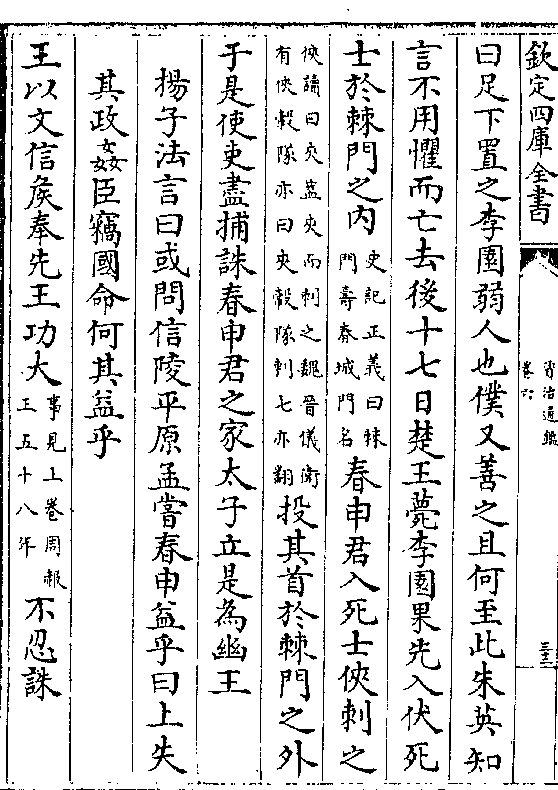 欽定四庫全書
資治通鑑
卷六
曰足下置之李園弱人也僕又善之且何至此朱英知
言不用懼而亡去後十七日楚王薨李園果先入伏死
士於棘門之内
史記正義曰棘
門壽春城門名
春申君入死士俠刺之
俠讀曰夾葢夾而刺之魏晉儀衛
有俠轂隊亦曰夾轂隊刺七亦翻
投其首於棘門之外
于是使吏盡捕誅春申君之家太子立是為幽王
揚子法言曰或問信陵平原孟嘗春申益乎曰上失
其政姦臣竊國命何其益乎
王以文信侯奉先王功大
事見上卷周赧
王五十八年
不忍誅